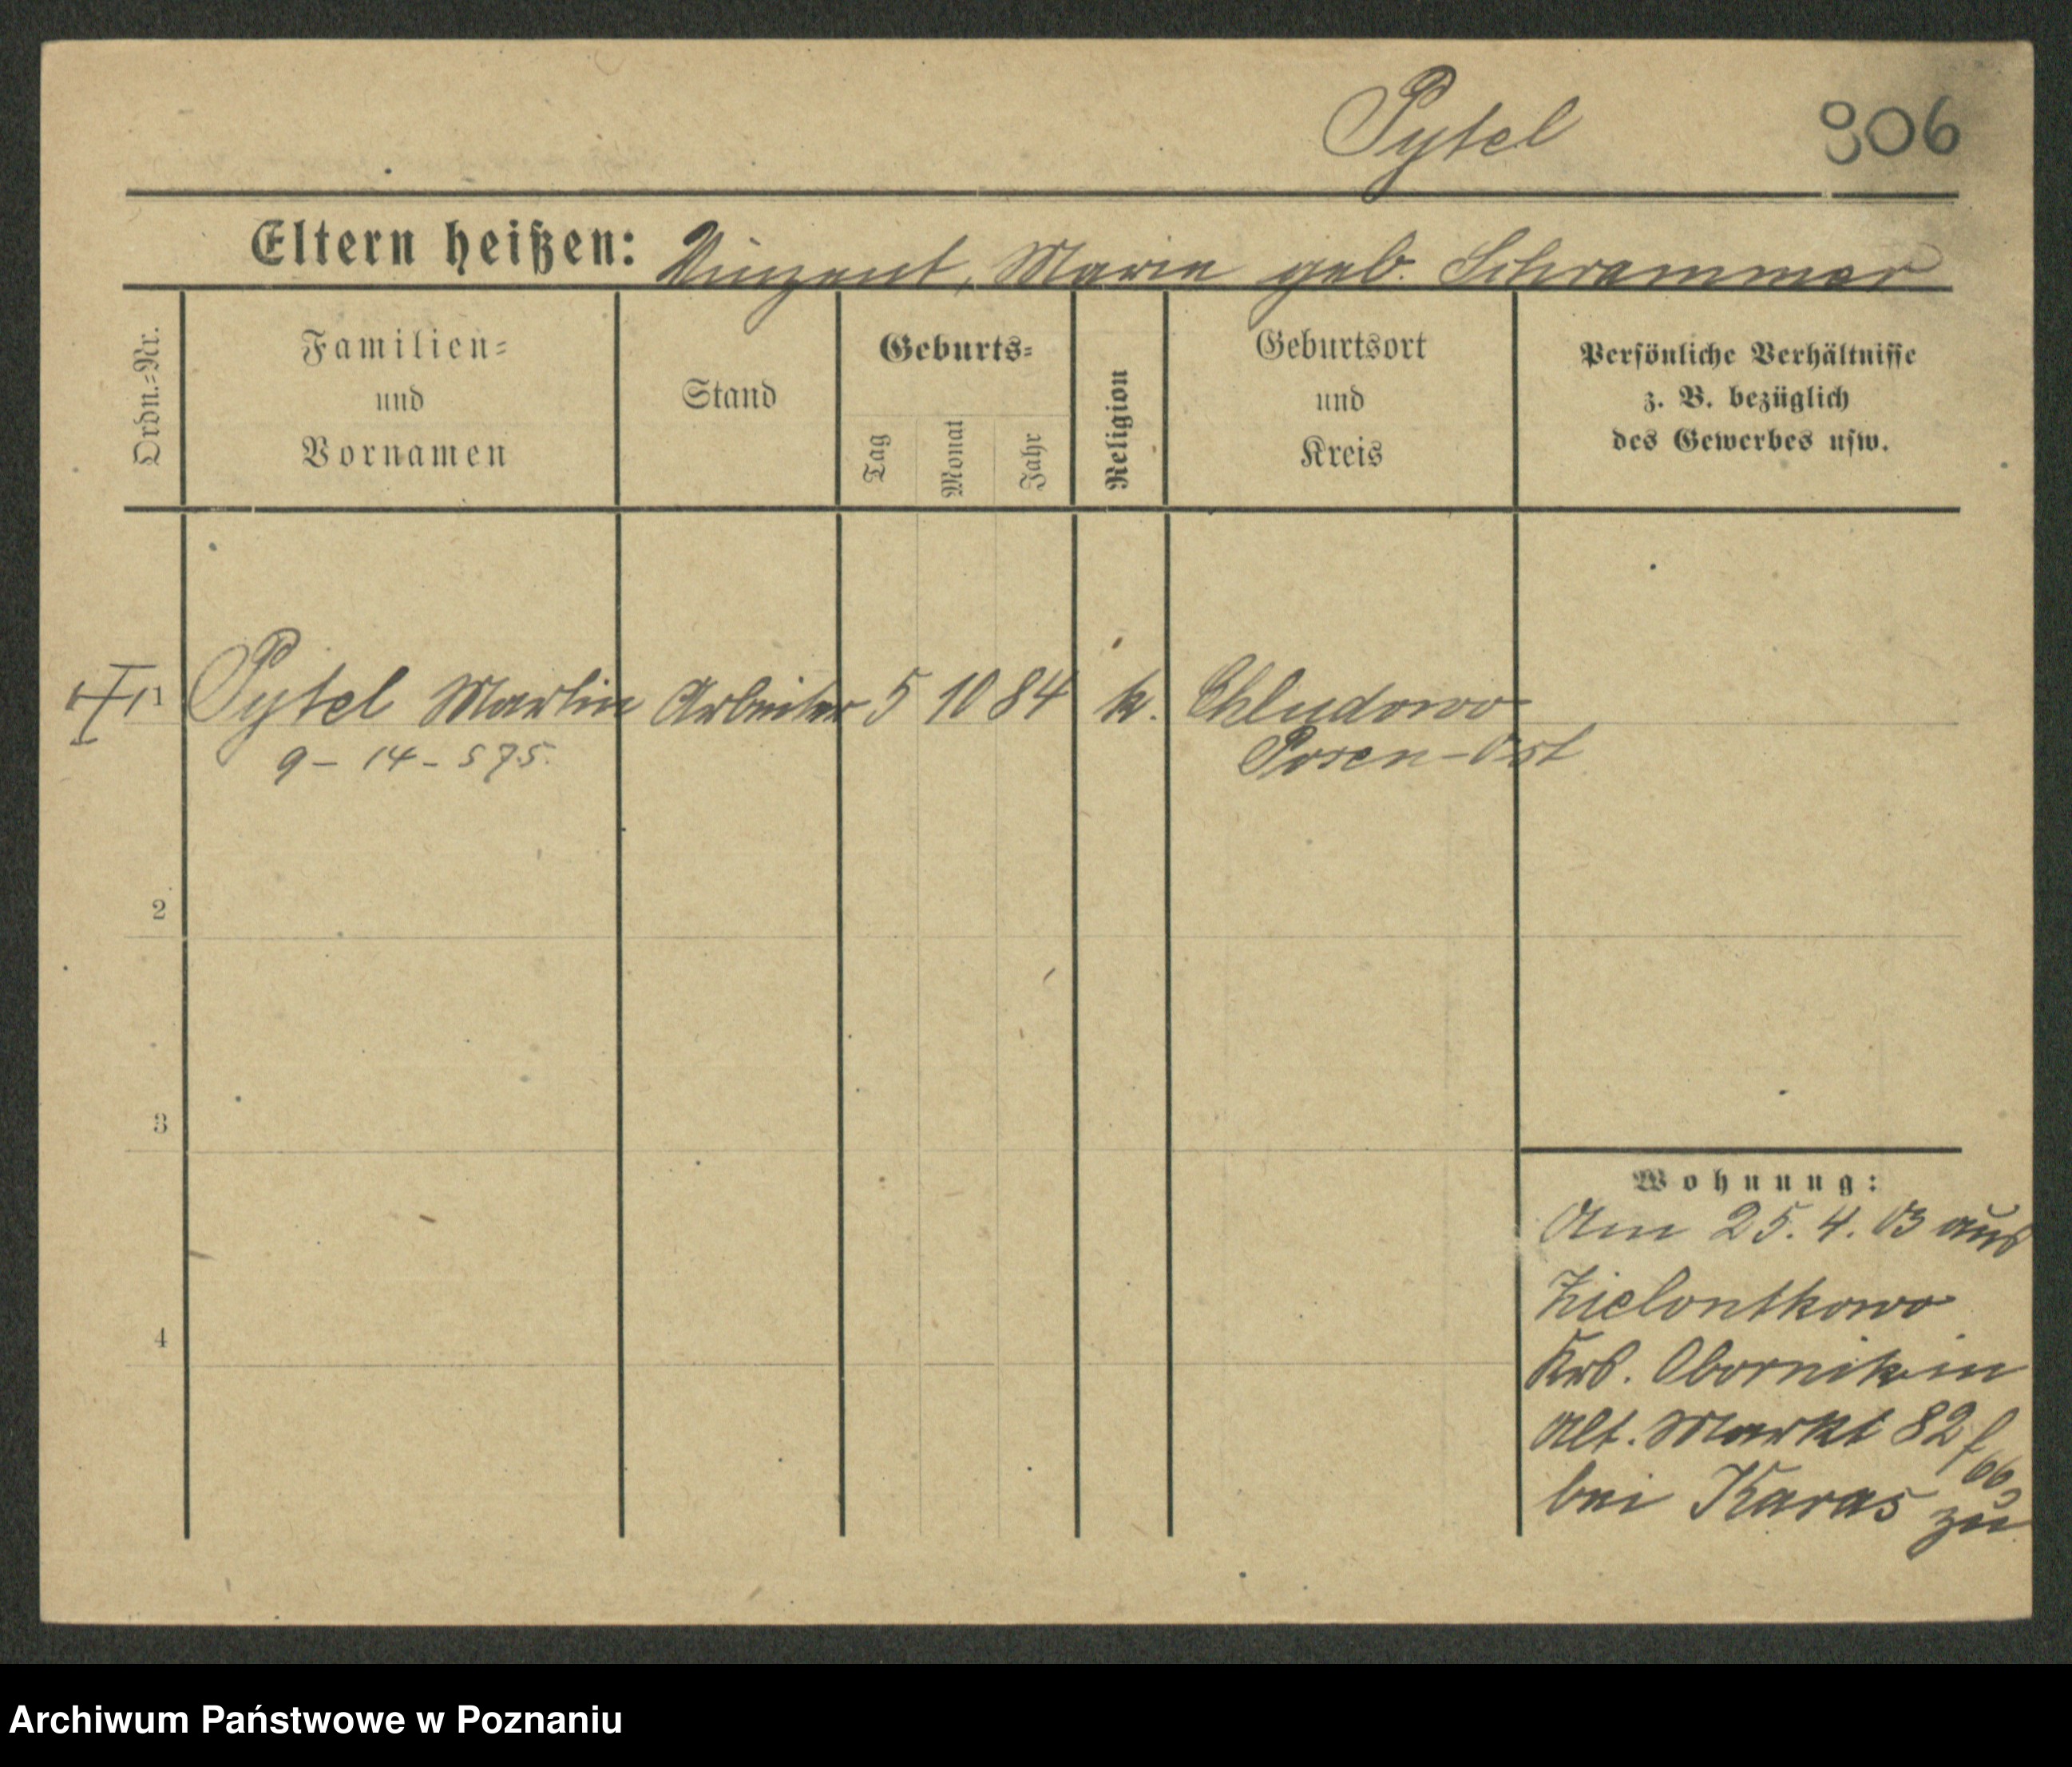 Pytel 906
Eltern heißen: Vinzent, Marie geb. Schrammer
Ordn.=Nr.
Familien=
und
Vornamen
Stand
Geburts=
Tag
Monat
Jahr
Religion
Geburtsort
und
Kreis
Persönliche Verhältnisse
z. B. bezüglich
des Gewerbes usw.
1 Pytel Martin Arbeiter 5 10 84 k. Chludowo
9-14-575. Posen-Ost
2
3
4
Wohnung:
Am 25.4.03 aus
Zielontkowo
Krs. Obornik in
Alt. Markt 82
bei Karas zu
Archiwum Państwowe w Poznaniu